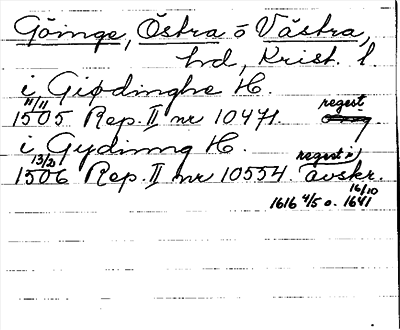 Göinge, Östra o Västra,
hd, Krist. l.
i Giødinghe H.
11/11 regest
1505 Rep. II nr 10471.
i Gydinng H.
13/2 regest i
1506 Rep. II nr 10554. avskr.
1616 4/5 o. 16/10 1641